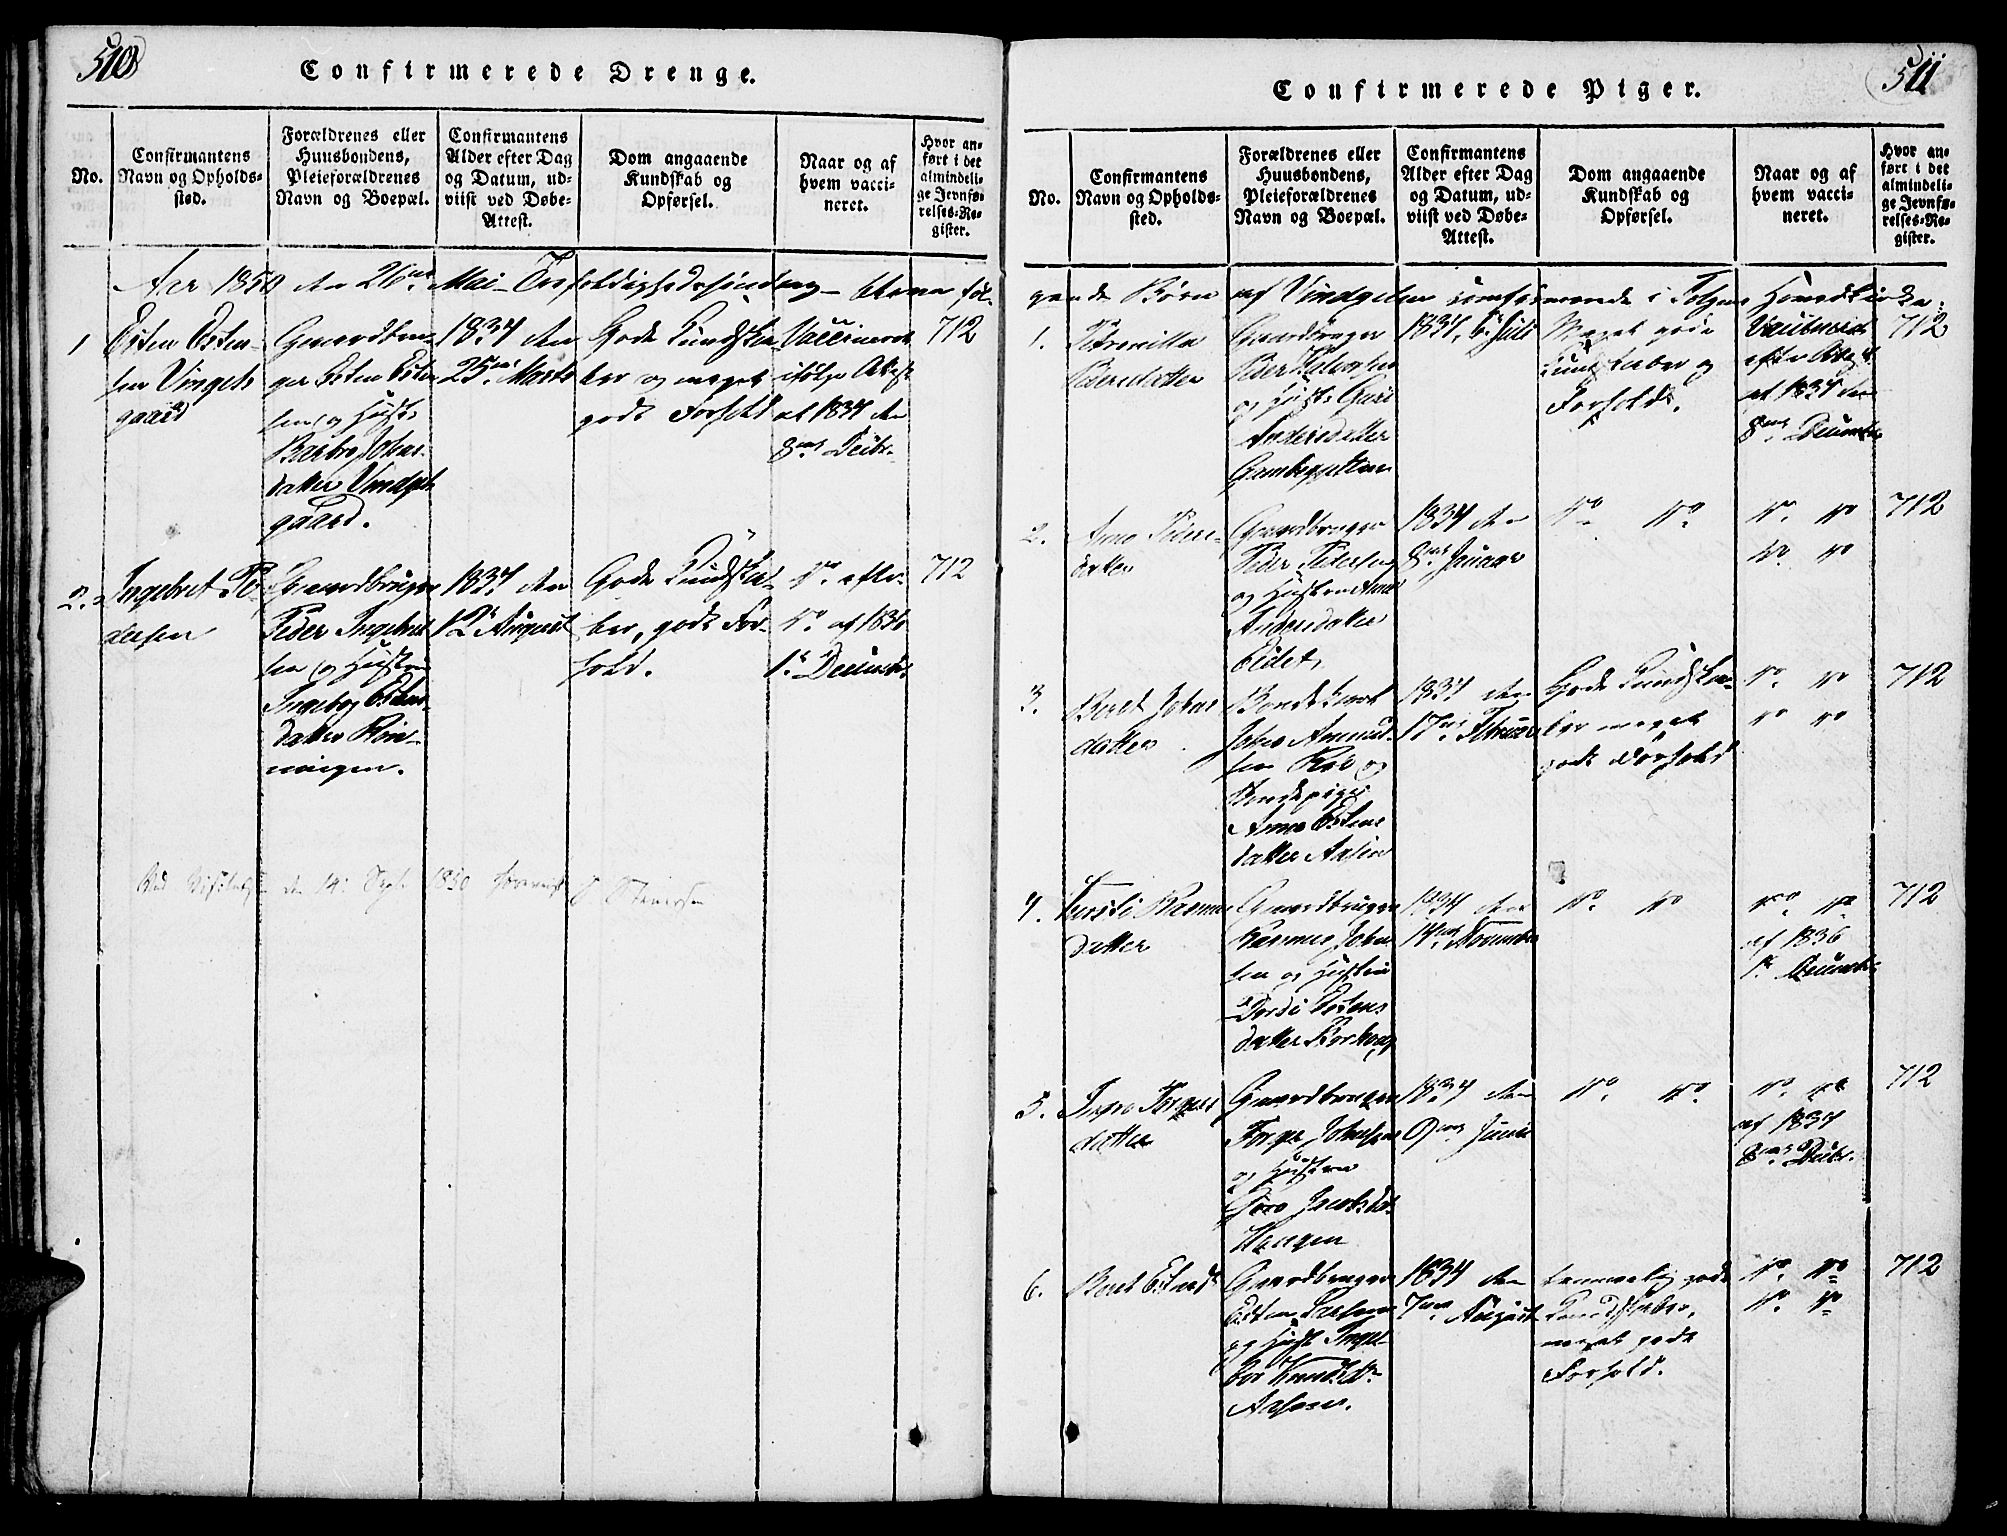 510
Confirmerede Drenge.
No.
Confirmantens
Navn og Opholds-
sted.
Forældrenes eller
Huusbondens,
Pleieforældrenes
Navn og Boepæl.
Confirmantens
Alder efter Dag
og Datum, ud-
viist ved Døbe-
Attest.
Dom angaaende
Kundskab og
Opførsel.
Naar og af
hvem vacci-
neret.
Hvor an-
ført i det
almindeli-
ge Jevnfø-
relses-Re-
gister.
Aar 1850 den 26de Mai - Trefoldighedssøndag - bleve føl-
1
Esten Esten-
sen Vingels
gaard
Gaardbru-
ger Esten Esten
sen og Hustr.
Barbro Johns-
datter Vindgel-
gaard.
1834 den
25de Marts
Gode Kundska-
ber og meget
godt Forhold
Vaccineret
ifølge Attest
af 1834 den
8de Decbr.
712
2.
Ingebret Pe-
dersen
Gaardbruger
Peder Ingebret
sen og Hustru
Ingebor Estens
datter Røn-
ningen.
1834 den
12te August
Gode Kundska-
ber, godt For-
hold.
do. efter
do. af 1836
1te December
712
Ved Visitats den 14. Sept. 1850 foreviist
511
Confirmerede Piger.
No.
Confirmantens
Navn og Opholds-
sted.
Forældrenes eller
Huusbondens,
Pleieforældrenes
Navn og Boepæl.
Confirmantens
Alder efter Dag
og Datum, ud-
viist ved Døbe-
Attest.
Dom angaaende
Kundskab og
Opførsel.
Naar og af
hvem vacci-
neret.
Hvor an-
ført i det
almindeli-
ge Jevnfø-
relses-Re-
gister.
gende Børn af Vindgelen confirmerede i Tolgens Hovedkirke:
1.
Pedersdatter
Gaardbruger
Peder Halvorsen
og Hustr. Guri
Andersdatter
1834, 6te Juli
Meget gode
Kundskaber og
Forhold.
Vaccineret
efter Attest
af 1834 den
8de December
712
2.
Anne Peders-
datter
Gaardbruger
Peder Pedersen
og Hustru Anne
Andersdatter
Eidet,
1834 den
8de Januar
do. do
do. do
do. do
712
3.
Beret Johns
datter
Bondekarl
John Amund-
sen Roe og
Bondepige
Anne Estens
datter Aasen
1834 den
17de Februar
Gode Kundska-
ber meget
godt Forhold
do. do
do do
712
4.
Kersti Rasmus
datter
Gaardbruger
Rasmus John
sen og Hustru
Dordi Estens
datter
1834 den
14de November
do. do
do. do
af 1836
1te December
712
5.
datter
Gaardbruger
Torger Johnsen
og Hustru
Goro Jacobsdat.
Haugen
1834 den
9de Junii
do. do.
do. do
af 1834
8de Decbr.
712
6.
Beret Estensd.
Gaardbruger
Esten
og Hust. Inge-
bor Knudsdtr
Aasen.
1834 den
7de August
temmelig gode
Kundskaber,
meget godt
Forhold.
do. do
do. do
712